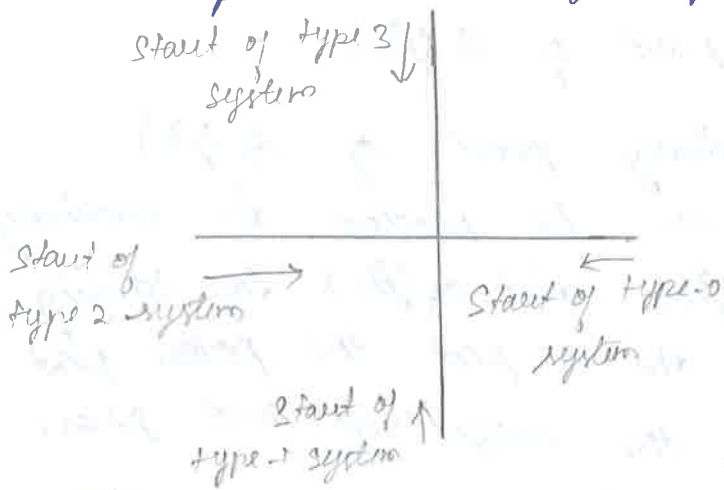 Start of type 3
system
Start of
type 2 system
Start of type-0
system
Start of
type-1 system